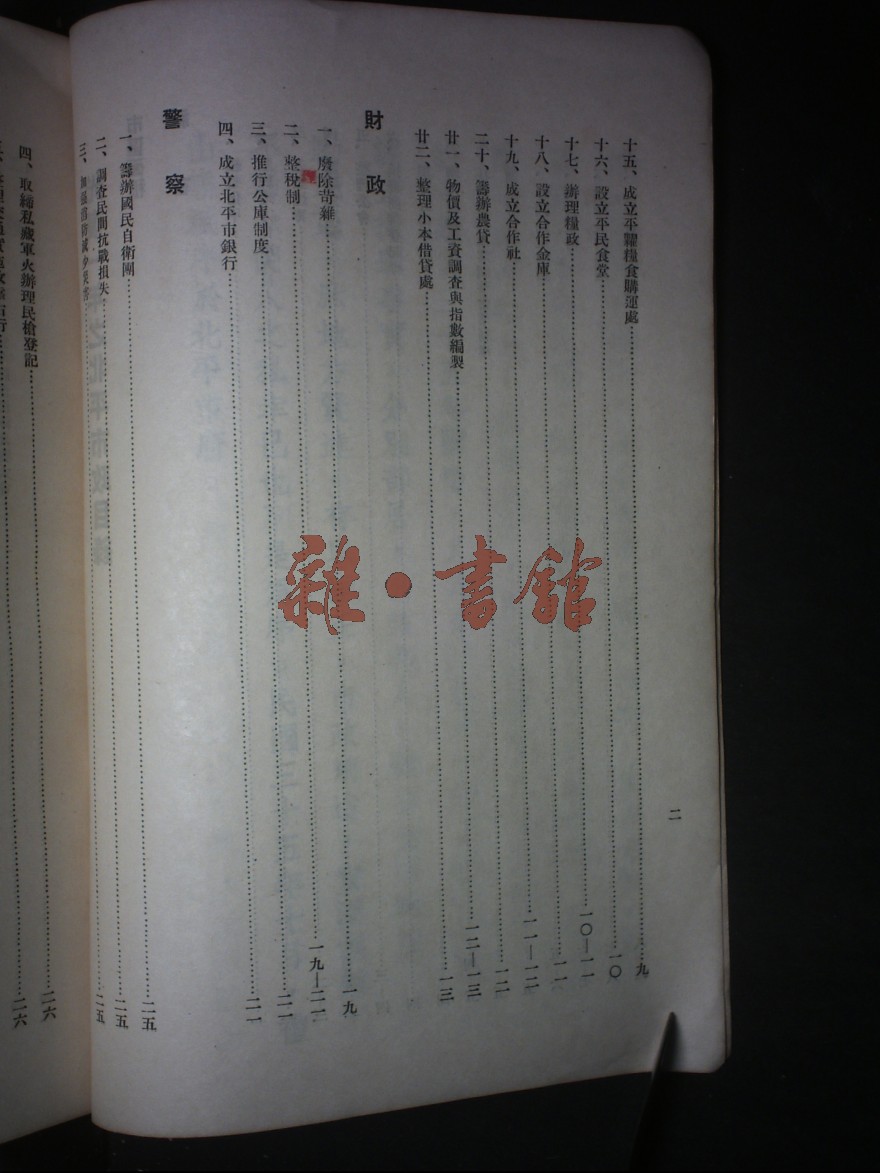 二
十五、成立平糶糧食購運處……九
十六、設立平民食堂……一〇
十七、辦理糧政……一〇—一一
十八、設立合作金庫……一一
十九、成立合作社……一一—一二
二十、籌辦農貸……一二
廿一、物價及工資調查與指數編製……一二—一三
廿二、整理小本借貸處……一三
財政
一、廢除苛雜……一九
二、整稅制……一九—二一
三、推行公庫制度……二一
四、成立北平市銀行……二一
警察
一、籌辦國民自衛團……二五
二、調查民間抗戰損失……二五
三、加强消防減少災害……二五
四、取締私藏軍火辦理民槍登記……二六
二六
雜·書館